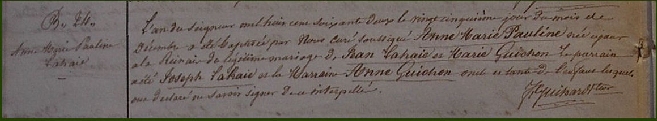 B. 74.
Anne Marie Pauline
Lahaie
L'an du Seigneur mil huit cent soixante douze le vingt cinquième jour du mois de
Décembre a été baptisée par Nous curé soussigné Anne Marie Pauline née
à la Rivière du légitime mariage de Jean Lahaie et Marie Guichon Le parrain
a été Joseph Lahaie et la Marraine Anne Guichon tante de l'enfant lesquels
ont déclaré ne savoir signer de ce interpellés.
Guichard